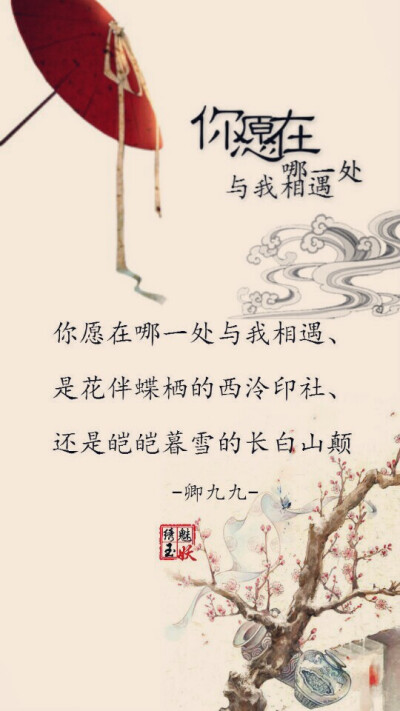 你愿在
哪一处
与我相遇
你愿在哪一处与我相遇、
是花伴蝶栖的西泠印社、
还是皑皑暮雪的长白山颠
-卿九九-
魅妖
绣玉